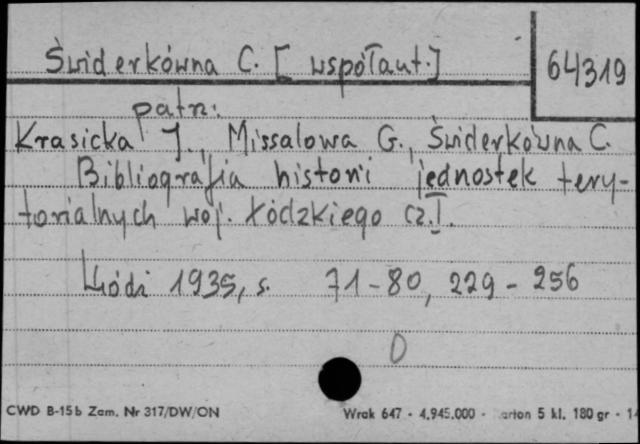 Świderkówna C. [współaut.]
64319
patrz:
Krasicka J., Missalowa G., Świderkówna C.
Bibliografia historii jednostek tery-
torialnych woj. łódzkiego cz. I.
Łódź 1935, s. 71-80, 229-256
0
CWD B-15b Zam. Nr 317/DW/ON
Wrak 647 - 4.945.000 - arton 5 kl. 180 gr - 14